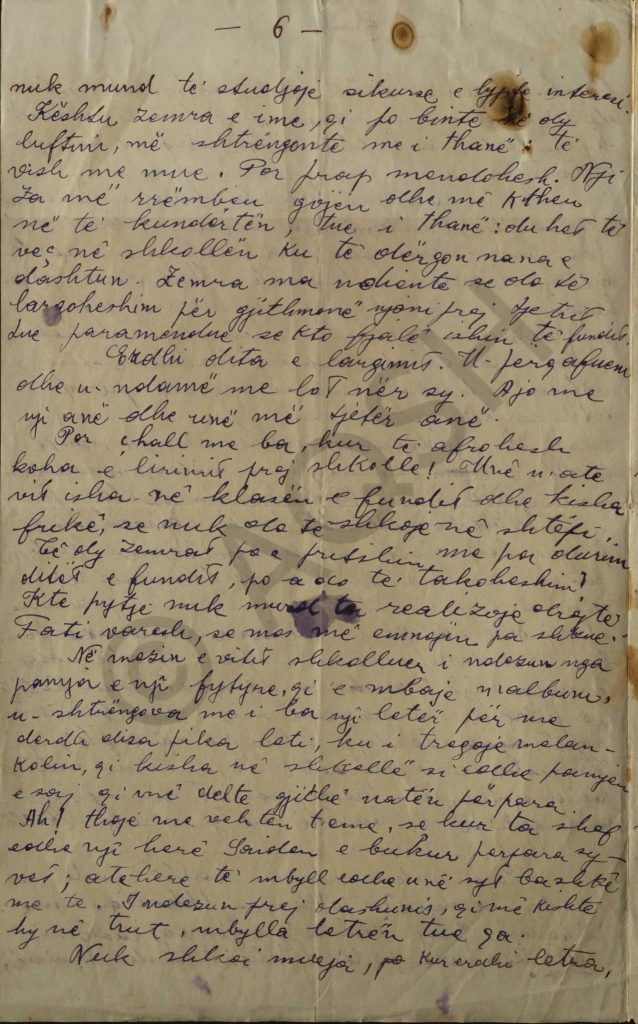 — 6 —
nuk mund të studjojë sikurse e lypte interesi.
Kështu zemra e ime, qi po binte në dy
luftim, më shtrëngonte me i thanë: të
vish me mue. Por prap mendohesh. Nji
za më rrëmbeu gojën dhe më ktheu
në të kundërtën, tue i thanë: duhet të
veç në shkollën ku të dërgon nana e
dashtun. Zemra ma ndiente se do të
largoheshim për gjithmonë njoni prej tjetrit
tue paramendue se kto fjalë ishin të fundit.
Erdhi dita e largimit. U-përqafuem
dhe u-ndamë me lot nër sy. Ajo me
nji anë dhe unë më tjetër anë.
Por çhall me ba, kur të afrohesh
koha e lirimit prej shkolle! Unë n'atë
vit isha në klasën e fundit dhe kisha
frikë, se nuk do të shkoje në shtëpi.
Të dy zemrat po e pritshim me por durim
ditët e fundit, po a do të takoheshim?
Kte pytje nuk mund ta realizoje drejtë
Fati varesh, se mos më
Në mesin e vitit shkolluer i ndezun nga
pamja e nji fytyre, qi e mbaje n'album,
u-shtrëngova me i ba nji letër për me
derdh disa pika loti, ku i tregoje melan-
kolin, qi kisha në shkollë si edhe pamjen
e saj qi më delte gjithë natën përpara.
Ah! thoje me vehten t'eme, se kur ta shof
edhe nji herë Saiden e bukur përpara sy-
vet; atëhere të mbyll edhe unë syt bashkë
me te. I ndezun prej dashunis, qi më kishte
hy në trut, mbylla letrën tue qa.
Nuk shkoi mueja, po kur erdhi letra,